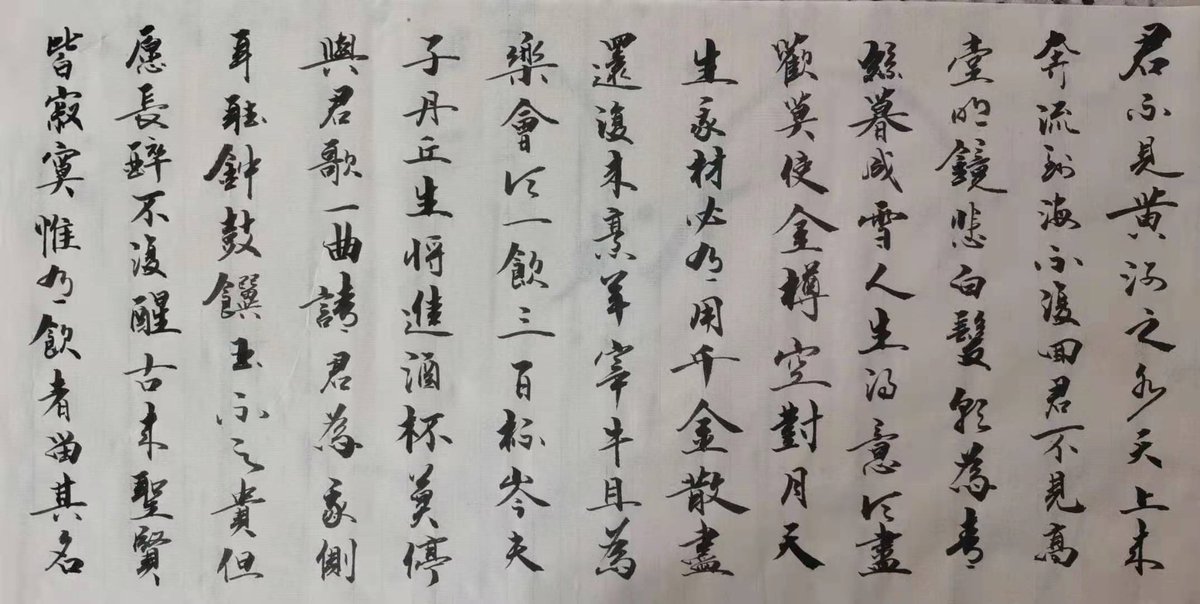 君不見黄河之水天上来
奔流到海不復回君不見高
堂明鏡悲白髮朝為青
絲暮成雪人生得意須盡
歡莫使金樽空對月天
生我材必有用千金散盡
還復来烹羊宰牛且為
樂會須一飲三百杯岑夫
子丹丘生将進酒杯莫停
與君歌一曲請君為我側
耳聽鈡鼓饌玉不足貴但
愿長醉不復醒古来聖賢
皆寂寞惟有飲者留其名